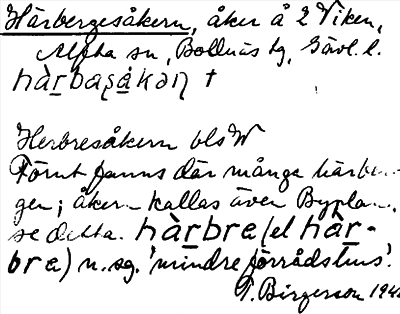 Härbergesåkern, åker å 2 Viken,
Alfta sn, Bollnäs tg, Gävl. l.
hàrbasåkəɳ †
Herbresåkern bls W
Förut fanns där många härber-
gen; åkern kallas även Byplan,
se detta. hàrbrə (el hàr-
brə) n. sg. 'mindre förrådshus'.
T. Birgerson 194